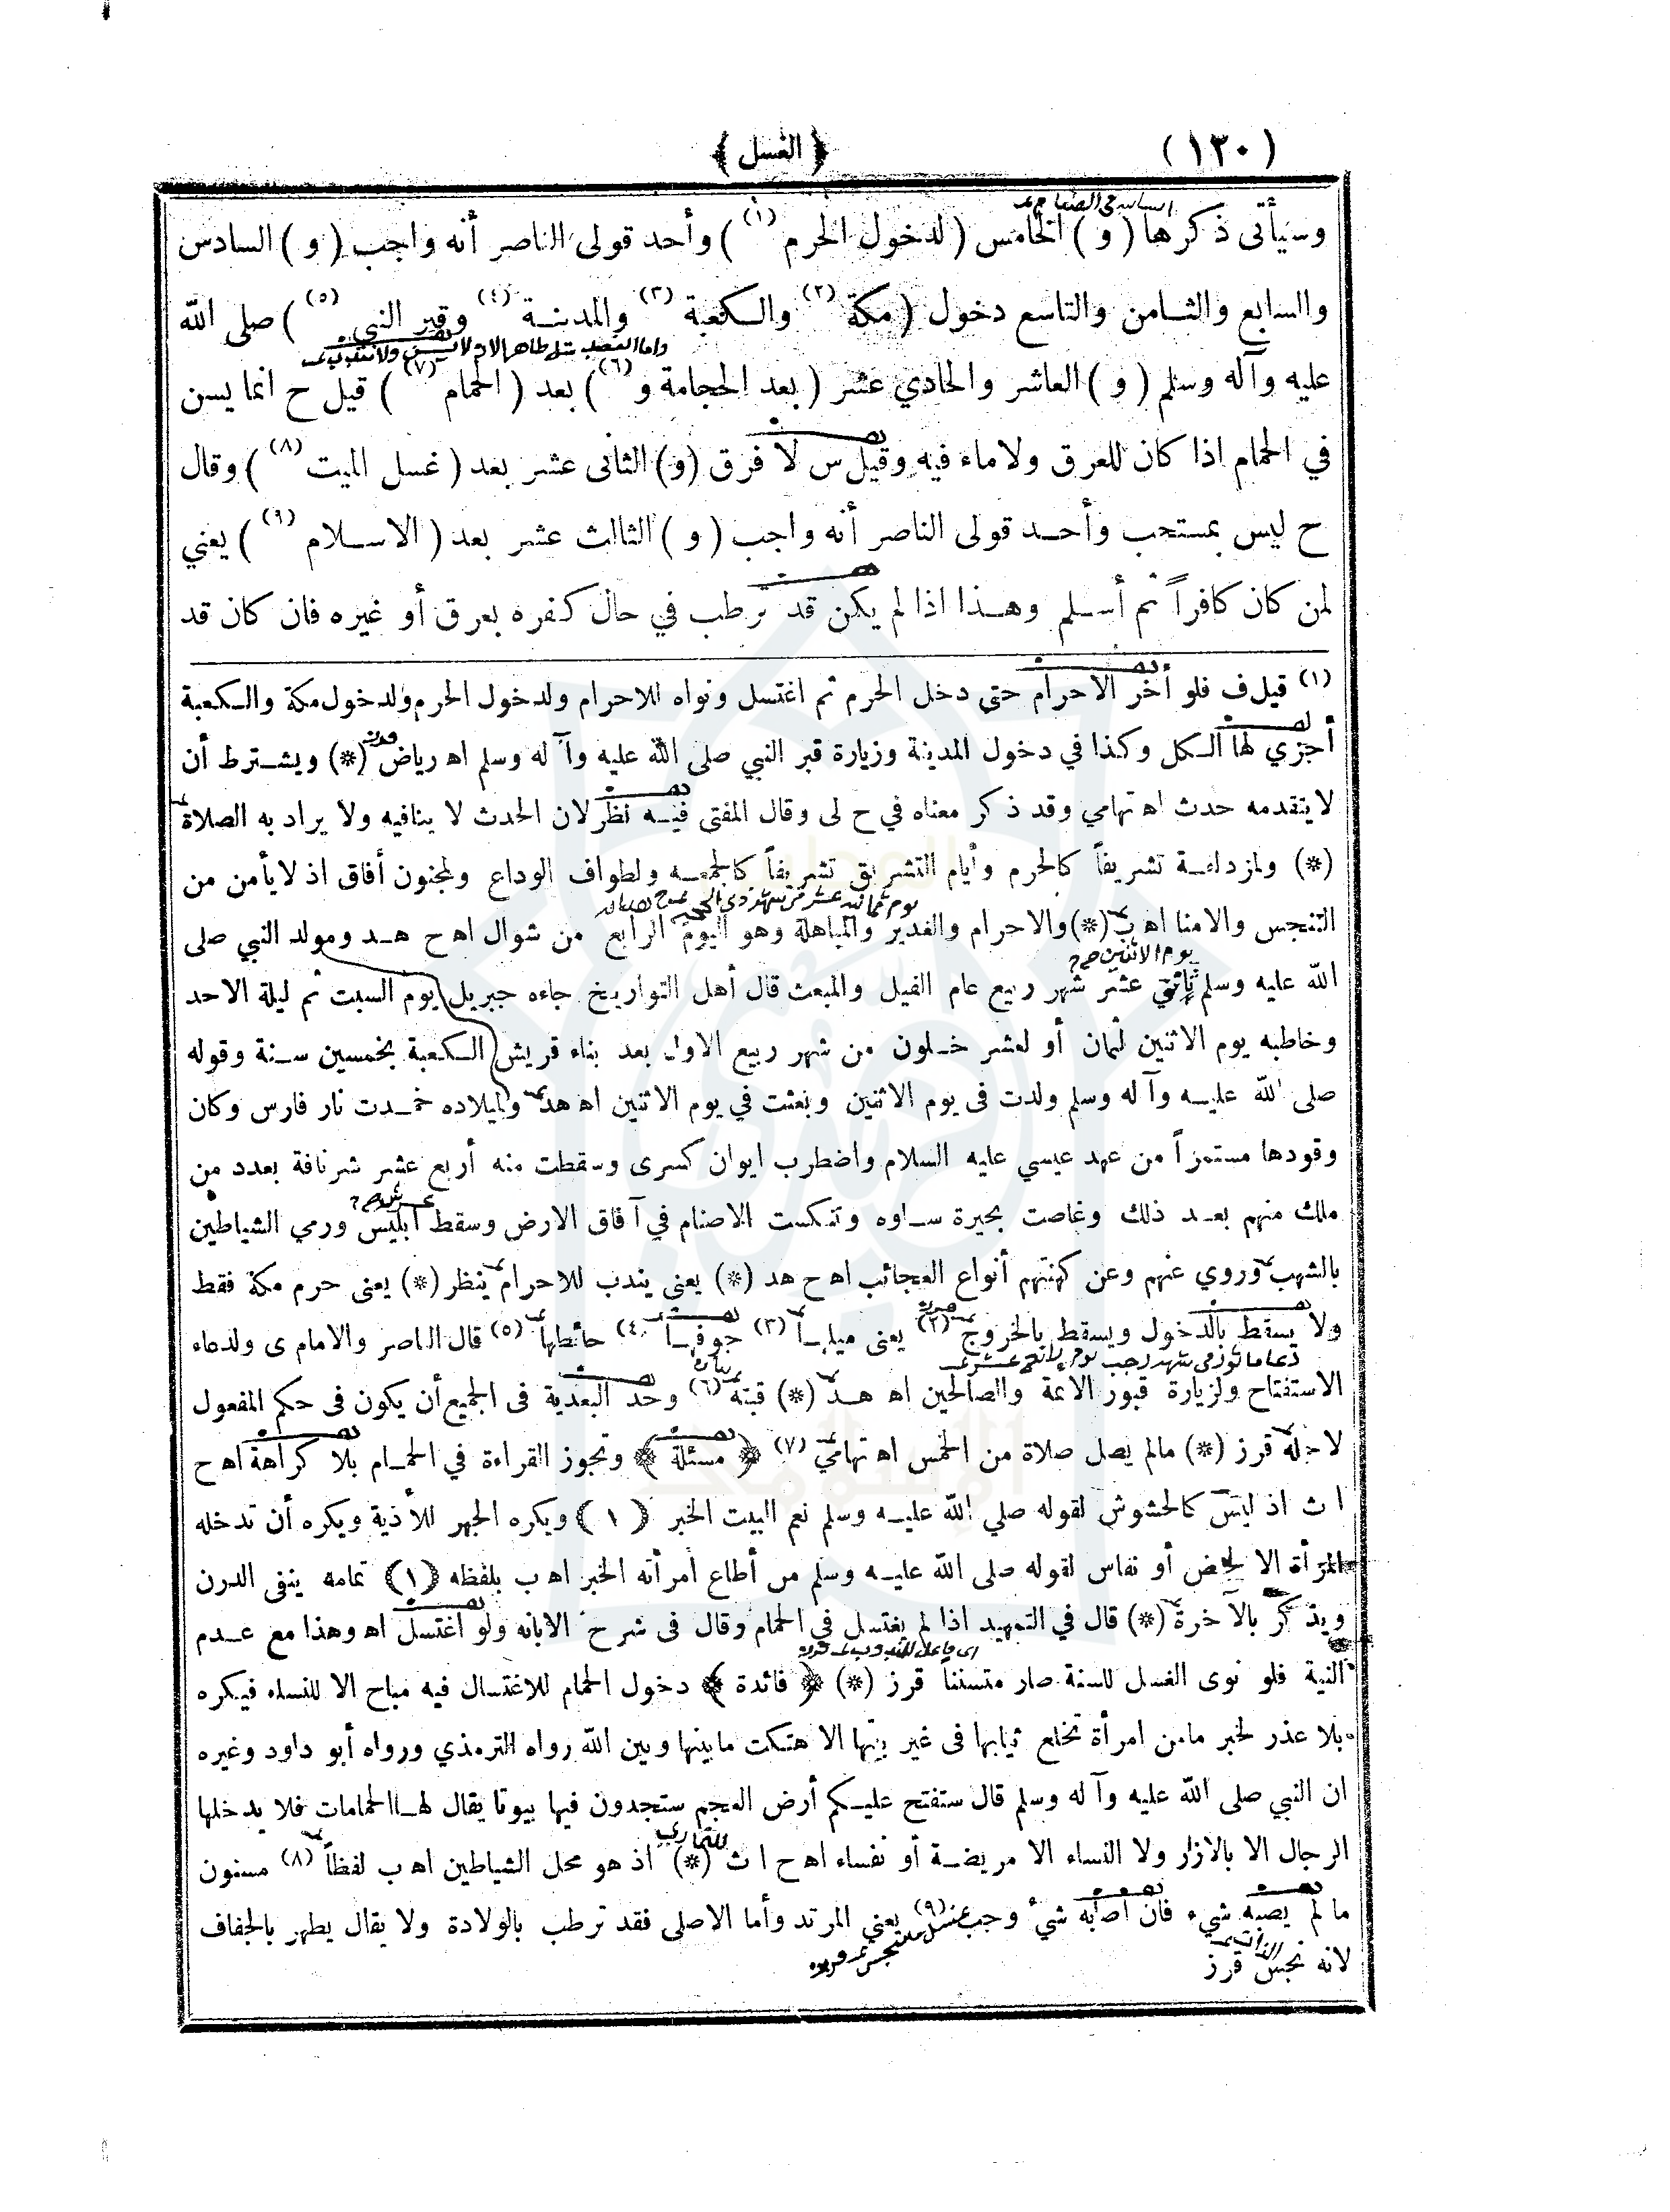 (١٣٠)
﴿ الغسل ﴾
وسيأتى ذكرها (و) الخامس (لدخول الحرم (١) ) وأحد قولى الناصر أنه واجب (و) السادس
والسابع والثامن والتاسع دخول (مكة (٢) والكعبة (٣) والمدينة (٤) وقبر النبي (٥) ) صلى الله
عليه وآله وسلم (و) العاشر والحادي عشر (بعد الحجامة و (٦) ) بعد (الحمام (٧) ) قيل ح انما يسن
في الحمام اذا كان للعرق ولاماء فيه وقيل س لا فرق (و) الثانى عشر بعد (غسل الميت (٨) ) وقال
ح ليس بمستحب وأحد قولى الناصر أنه واجب (و) الثالث عشر بعد (الاسلام (٩) ) يعني
لمن كان كافراً ثم أسلم وهذا اذا لم يكن قد ترطب في حال كفره بعرق أو غيره فان كان قد
(١) قيل ف فلو أخر الاحرام حتى دخل الحرم ثم اغتسل ونواه للاحرام ولدخول الحرم ولدخول مكة والكعبة
أجزي لها الكل وكذا في دخول المدينة وزيارة قبر النبي صلى الله عليه وآله وسلم اه رياض (*) ويشترط أن
لا يتقدمه حدث اه تهامي وقد ذكر معناه في ح لى وقال المفتى فيه نظر لان الحدث لا ينافيه ولا يراد به الصلاة
(*) ولمزدلفة تشريفاً كالحرم وأيام التشريق تشريفاً كالجمعه ولطواف الوداع ولمجنون أفاق اذ لا يأمن من
التنجس والامنا اه ب (*) والاحرام والغدير والمباهلة وهو اليوم الرابع من شوال اه ح هد ومولد النبي صلى
الله عليه وسلم ثانى عشر شهر ربيع عام الفيل والمبعث قال أهل التواريخ جاءه جبريل يوم السبت ثم ليلة الاحد
وخاطبه يوم الاثنين لثمان أو لعشر خلون من شهر ربيع الاول بعد بناء قريش الكعبة بخمسين سنة وقوله
صلى الله عليه وآله وسلم ولدت فى يوم الاثنين وبعثت في يوم الاثنين اه هد ولميلاده خمدت نار فارس وكان
وقودها مستمراً من عهد عيسي عليه السلام واضطرب ايوان كسرى وسقطت منه أربع عشر شرنافة بعدد من
ملك منهم بعد ذلك وغاصت بحيرة ساوه وتنكست الاصنام في آفاق الارض وسقط ابليس ورمي الشياطين
بالشهب وروي عنهم وعن كهنتهم أنواع العجائب اه ح هد (*) يعني يندب للاحرام ينظر (*) يعنى حرم مكة فقط
ولا يسقط بالدخول ويسقط بالخروج (٢) يعنى ميلها (٣) جوفها (٤) حائطها (٥) قال الناصر والامام ى ولدعاء
الاستفتاح ولزيارة قبور الائمة والصالحين اه هد (*) قبته (٦) وحد البعدية فى الجميع أن يكون فى حكم المفعول
لاجله قرز (*) مالم يصل صلاة من الخمس اه تهامي (٧) ﴿ مسئلة ﴾ وتجوز القراءة في الحمام بلا كراهة اه ح
ا ث اذ ليس كالحشوش لقوله صلي الله عليه وسلم نعم البيت الخبر (١) ويكره الجهر للأذية ويكره أن تدخله
المرأة الا لحيض أو نفاس لقوله صلى الله عليه وسلم من أطاع امرأته الخبر اه ب بلفظه (١) تمامه ينفى الدرن
ويذكر بالآخرة (*) قال في التمهيد اذا لم يغتسل في الحمام وقال فى شرح الابانه ولو اغتسل اه وهذا مع عدم
النية فلو نوى الغسل للسنة صار متسننا قرز (*) ﴿ فائدة ﴾ دخول الحمام للاغتسال فيه مباح الا للنساء فيكره
بلا عذر لخبر مامن امرأة تخلع ثيابها فى غير بيتها الا هتكت مابينها وبين الله رواه الترمذي ورواه أبو داود وغيره
ان النبي صلى الله عليه وآله وسلم قال ستفتح عليكم أرض العجم ستجدون فيها بيوتا يقال لها الحمامات فلا يدخلها
الرجال الا بالازار ولا النساء الا مريضة أو نفساء اه ح ا ث (*) اذ هو محل الشياطين اه ب لفظاً (٨) مسنون
ما لم يصبه شيء فان أصابه شئ وجب غسل (٩) يعنى المرتد وأما الاصلى فقد ترطب بالولادة ولا يقال يطهر بالجفاف
لانه نجس قرز